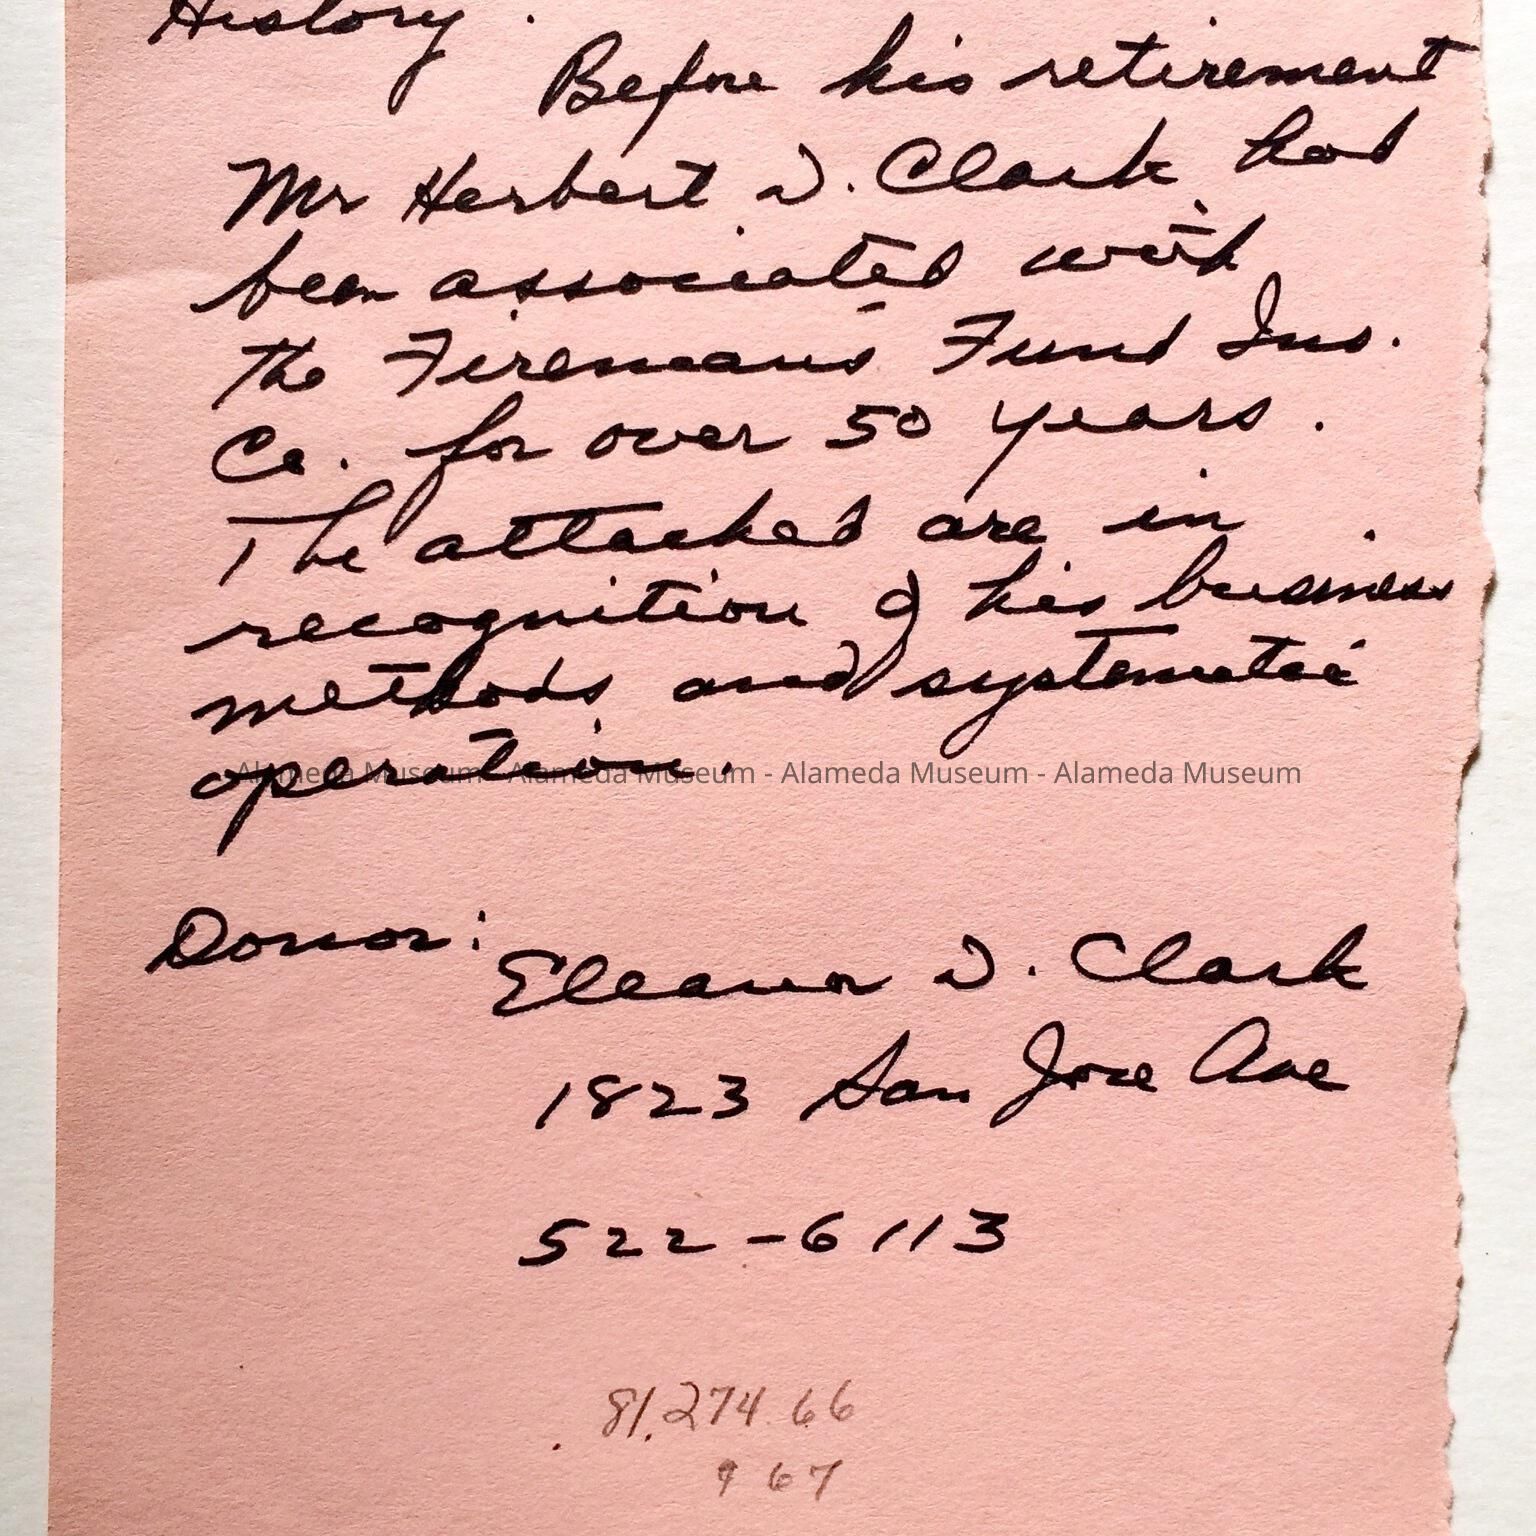 History.
Before his retirement
Mr Herbert D. Clark had
been associated with
the Fireman's Fund Ins.
Co. for over 50 years.
The attached are in
recognition of his business
methods and systematic
operation.
Alameda Museum - Alameda Museum - Alameda Museum - Alameda Museum
Donor:
Eleanor D. Clark
1823 San Jose Ave
522-6113
81.274.66
9 67